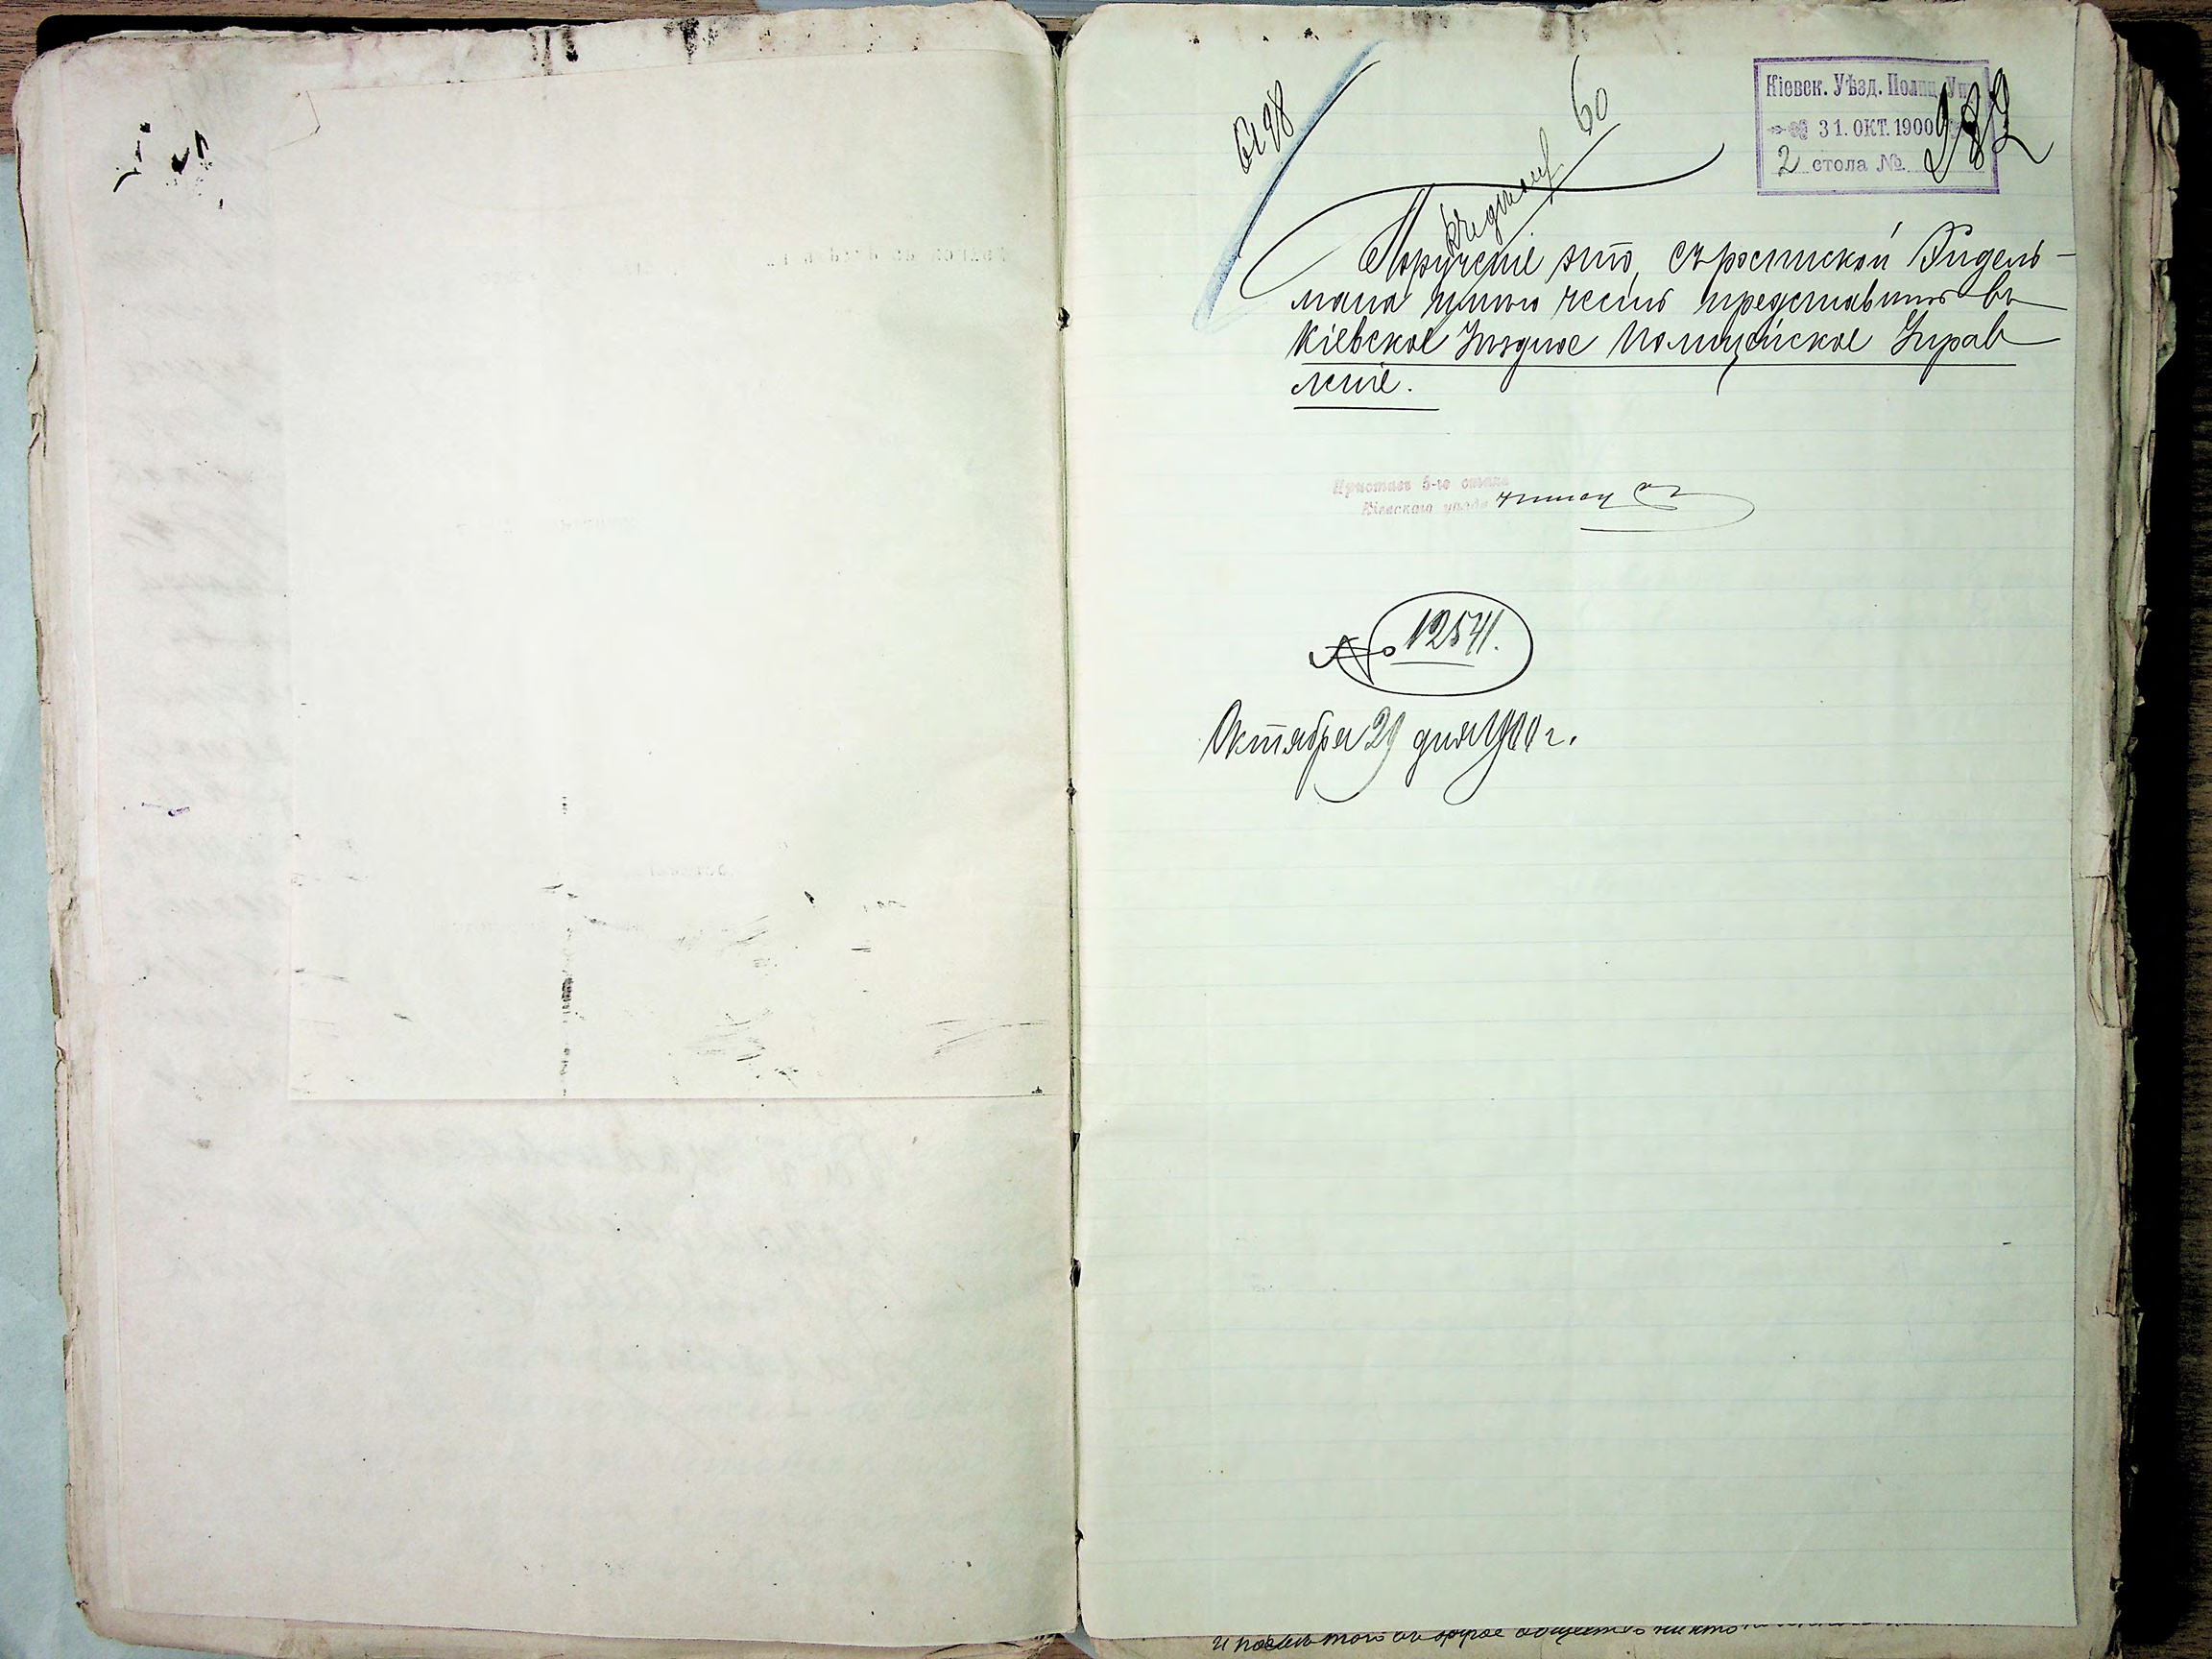 6198
60
Кіевск. Уѣзд. Полиц. Уп.
31. ОКТ. 1900
2 стола №. 982
Порученіе это, съ роспиской Фидель-
мана имѣю честь представить въ
Кіевское Уѣздное Полицейское Управ
леніе.
Приставъ 5-го стана
Кіевскаго уѣзда
№ 12541.
Октября 29 дня 1900 г.
и послѣ того въ другое общество никто